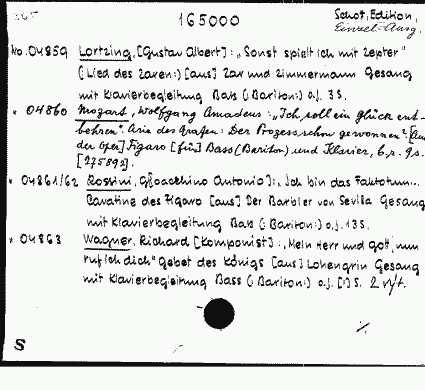 165000
Schott, Edition,
Einzel-Ausg.
No. 04859 Lortzing, [Gustav Albert]: „Sonst spielt ich mit Zepter"
(Lied des Zaren:) [aus] Zar und Zimmermann Gesang
mit Klavierbegleitung Bass (: Bariton:) o.J. 3 S.
" 04860 Mozart, Wolfgang Amadeus: „Ich soll ein Glück ent-
behren". Aria des Grafen: Der Prozess schon gewonnen? [Aus
der Oper] Figaro [für] Bass (Bariton) und Klavier, o.J. 9 S.
[27589 2].
" 04861/62 Rossini, G[ioacchino Antonio]: „Ich bin das Faktotum...
Cavatine des Figaro [aus] Der Barbier von Sevilla Gesang
mit Klavierbegleitung Bass (: Bariton:) o.J. 13 S.
" 04863 Wagner, Richard [Komponist]: „Mein Herr und Gott, nun
ruf ich dich" Gebet des Königs [aus] Lohengrin Gesang
mit Klavierbegleitung Bass (: Bariton:) o.J. [1] S.
S